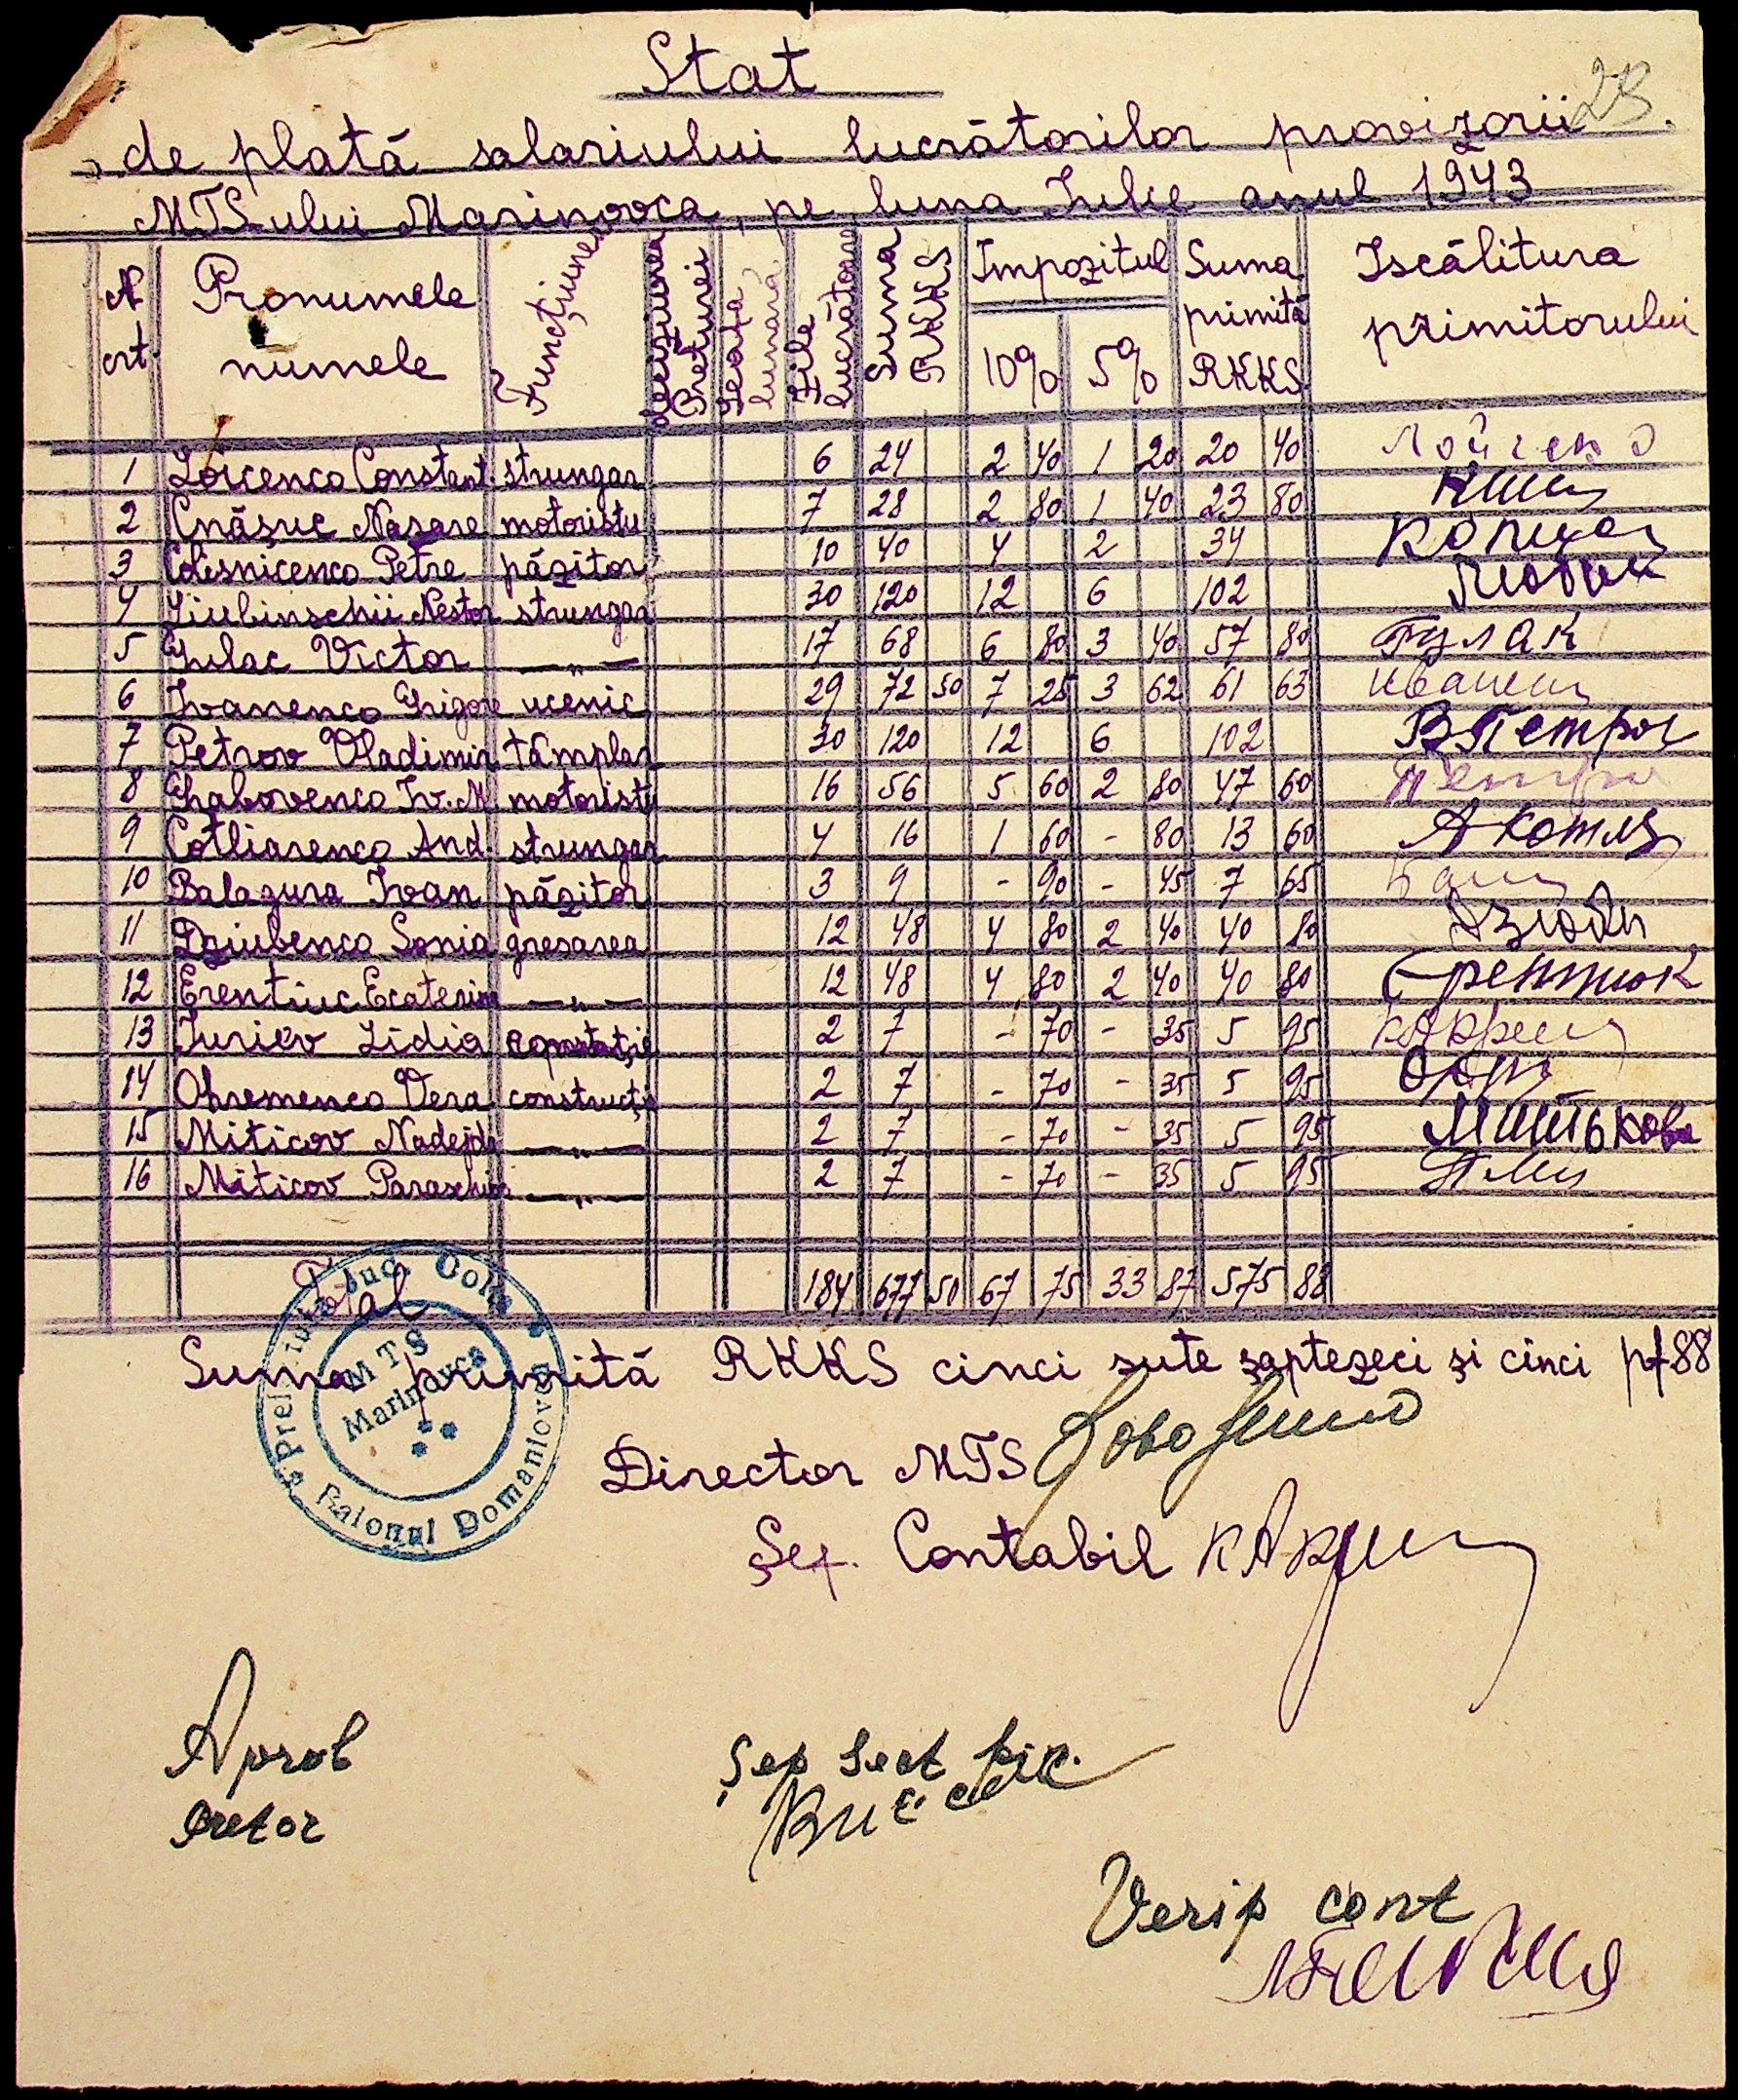 Stat
23.
de plată salariului lucrătorilor provizorii
MTSului Marinovca, pe luna Iulie anul 1943
N crt. Pronumele numele Funcțiunea deciziunea Preturii Leafa lunară Zile lucrătoare Suma RKKS Impozitul 10% 5% Suma primită RKKS Iscălitura primitorului
1 Loicenco Constant. strungar 6 24 2 40 1 20 20 40 Лойченко
2 Cnășuc Nazare motoristu 7 28 2 80 1 40 23 80
3 Colesnicenco Petre păzitor 10 40 4 2 34
4 Liubinschii Nestor strungar 30 120 12 6 102 Любин
5 Gulac Victor —„— 17 68 6 80 3 40 57 80 Гулак
6 Ivanenco Grigore ucenic 29 72 50 7 25 3 62 61 63 Иванен
7 Petrov Vladimir tâmplar 30 120 12 6 102 В Петров
8 Ghabovenco Iv. M motoristu 16 56 5 60 2 80 47 60
9 Cotliarenco And. strungar 4 16 1 60 - 80 13 60 А Котля
10 Balagura Ivan păzitor 3 9 - 90 - 45 7 65
11 Dziubenco Sonia gresarea 12 48 4 80 2 40 40 80 Дзюбен
12 Erentiuc Ecaterina —„— 12 48 4 80 2 40 40 80 Ерентюк
13 Iuriev Lidia 2 7 - 70 - 35 5 95
14 Ohremenco Vera construcție 2 7 - 70 - 35 5 95
15 Miticov Nadejda —„— 2 7 - 70 - 35 5 95 Митькова
16 Miticov Paraschiva —„— 2 7 - 70 - 35 5 95
Total 184 677 50 67 75 33 87 575 88
Suma primită RKKS cinci sute șaptezeci și cinci pf 88
MTS
Marinovca
Raionul Domaniovca
Director MTS
Șef. Contabil
Aprob
Pretor
Șef Sect fin.
Verif cont